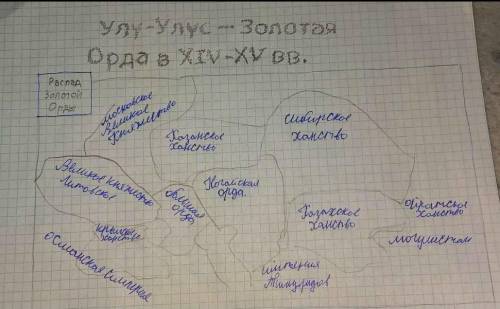 Улу-Улус – Золотая
Орда в XIV-XV вв.
Распад
Золотой
Орды
Московское
Великое
Княжество
Казанское
ханство
Сибирское
ханство
Великое княжество
Литовское
Большая
Орда
Ногайская
орда
Казахское
ханство
Ойратское
ханство
Могулистан
Крымское
ханство
Османская Империя
Тимуридов